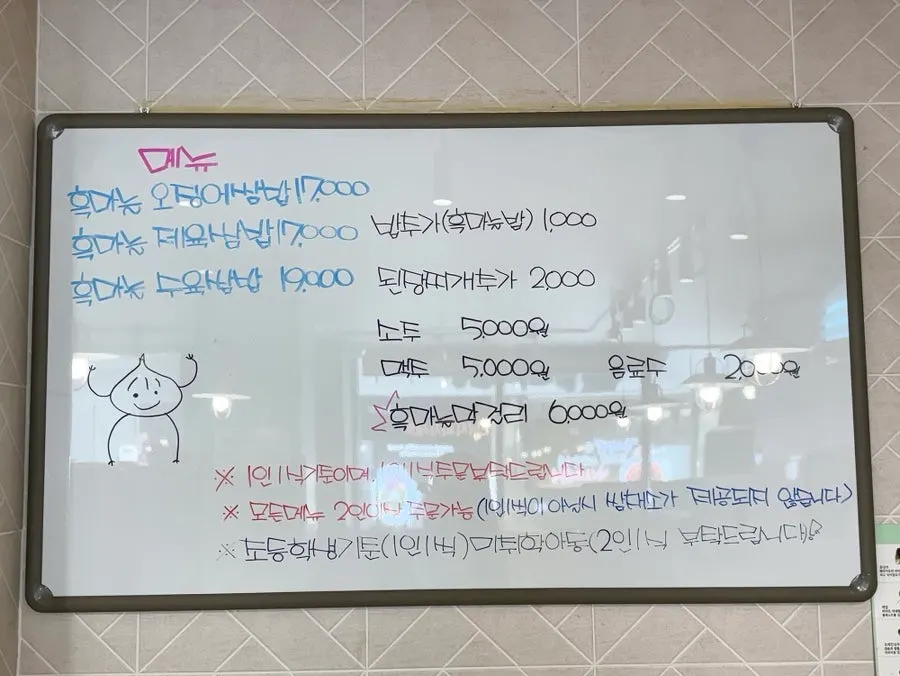 메뉴
흑마늘 오징어쌈밥 17,000
흑마늘 제육쌈밥 17,000
흑마늘 수육쌈밥 19,000
밥추가(흑마늘밥) 1,000
된장찌개추가 2,000
소주 5,000원
맥주 5,000원 음료수 2,000원
흑마늘막걸리 6,000원
※ 1인1식기준이며, 1인1식주문부탁드립니다
※ 모든메뉴 2인이상 주문가능(1인1식이 아닐시 쌈채소가 제공되지 않습니다)
※ 초등학생기준(1인1식)미취학아동(2인1식 부탁드립니다)